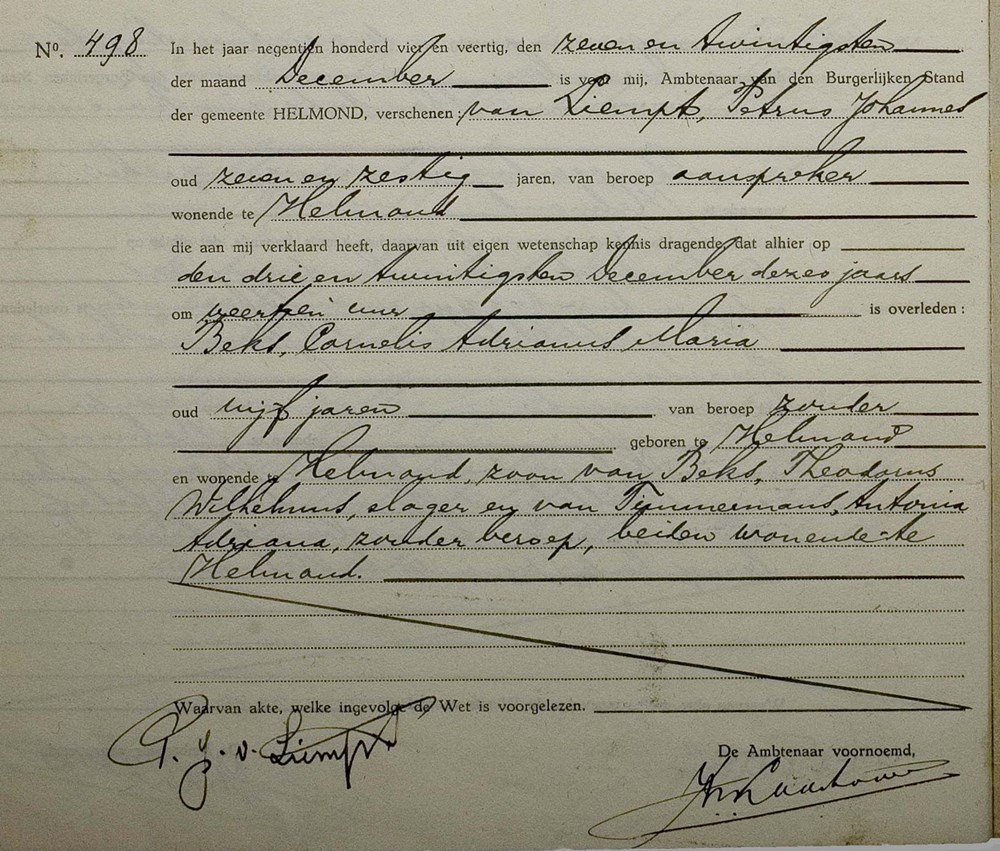 No. 498 In het jaar negentien honderd vier en veertig, den zeven en twintigsten
der maand December is voor mij, Ambtenaar van den Burgerlijken Stand
der gemeente HELMOND, verschenen: van Liempt, Petrus Johannes
oud zeven en zestig jaren, van beroep aanspreker
wonende te Helmond
die aan mij verklaard heeft, daarvan uit eigen wetenschap kennis dragende, dat alhier op
den drie en twintigsten December dezes jaars
om veertien uur is overleden:
Beks, Cornelis Adrianus Maria
oud vijf jaren van beroep zonder
geboren te Helmond
en wonende te Helmond, zoon van Beks, Theodorus
Wilhelmus, slager en van Timmermans, Antonia
Adriana, zonder beroep, beiden wonende te
Helmond.
Waarvan akte, welke ingevolge de Wet is voorgelezen.
P. J. v. Liempt
De Ambtenaar voornoemd,